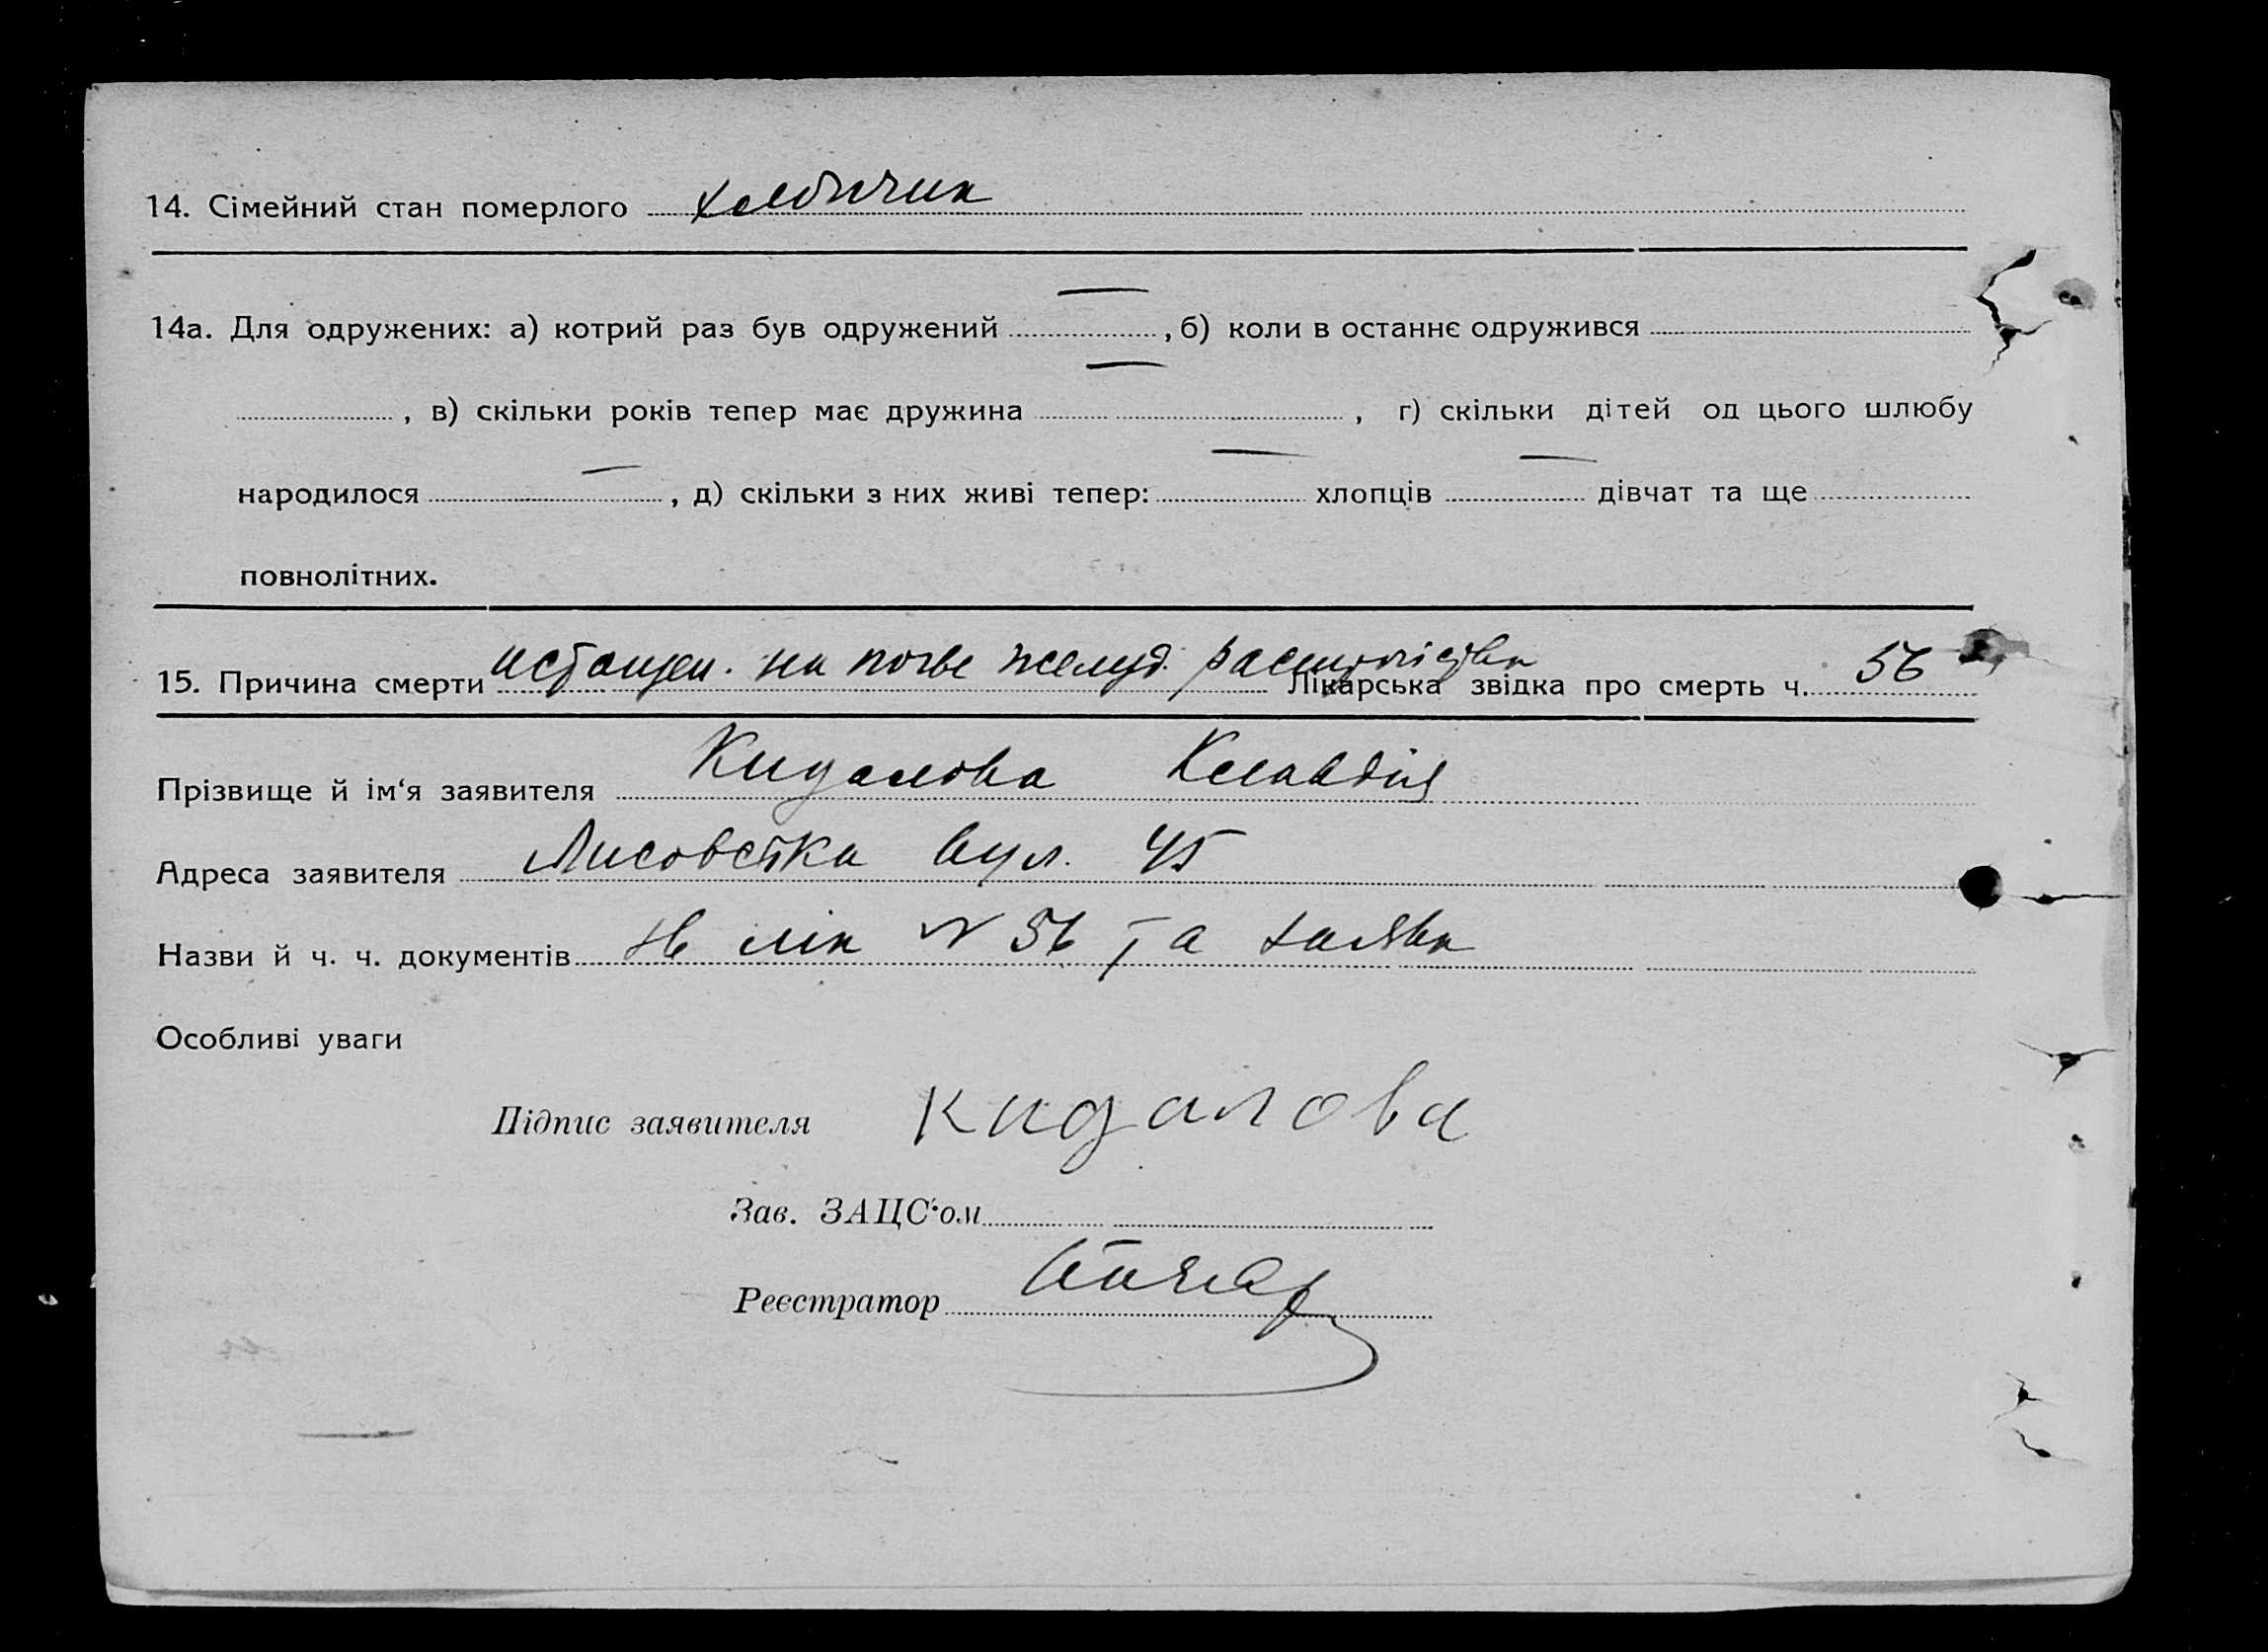 14. Сімейний стан померлого хлопчик
14а. Для одружених: а) котрий раз був одружений — , б) коли в останнє одружився
, в) скільки років тепер має дружина — , г) скільки дітей од цього шлюбу
народилося — , д) скільки з них живі тепер: — хлопців — дівчат та ще
повнолітних.
15. Причина смерти истощен. на почве желуд. Лікарська звідка про смерть ч. 56
Прізвище й ім'я заявителя Кидалова Клавдія
Адреса заявителя вул. 45
Назви й ч. ч. документів лік № 56 та заява
Особливі уваги
Підпис заявителя Кидалова
Зав. ЗАЦС'ом
Реєстратор